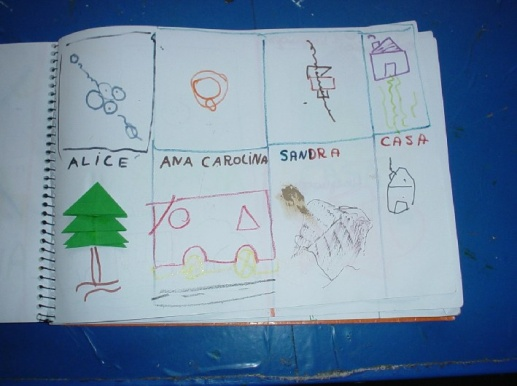 ALICE ANA CAROLINA SANDRA CASA